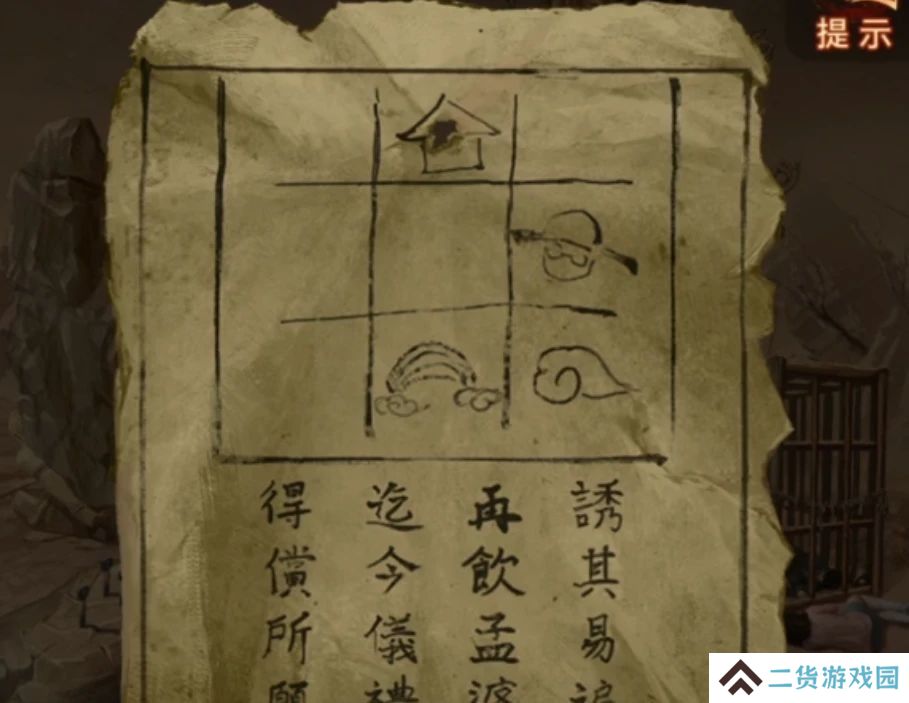 提示
誘其易
再飲孟婆
迄今儀禮
得償所願
二货游戏园